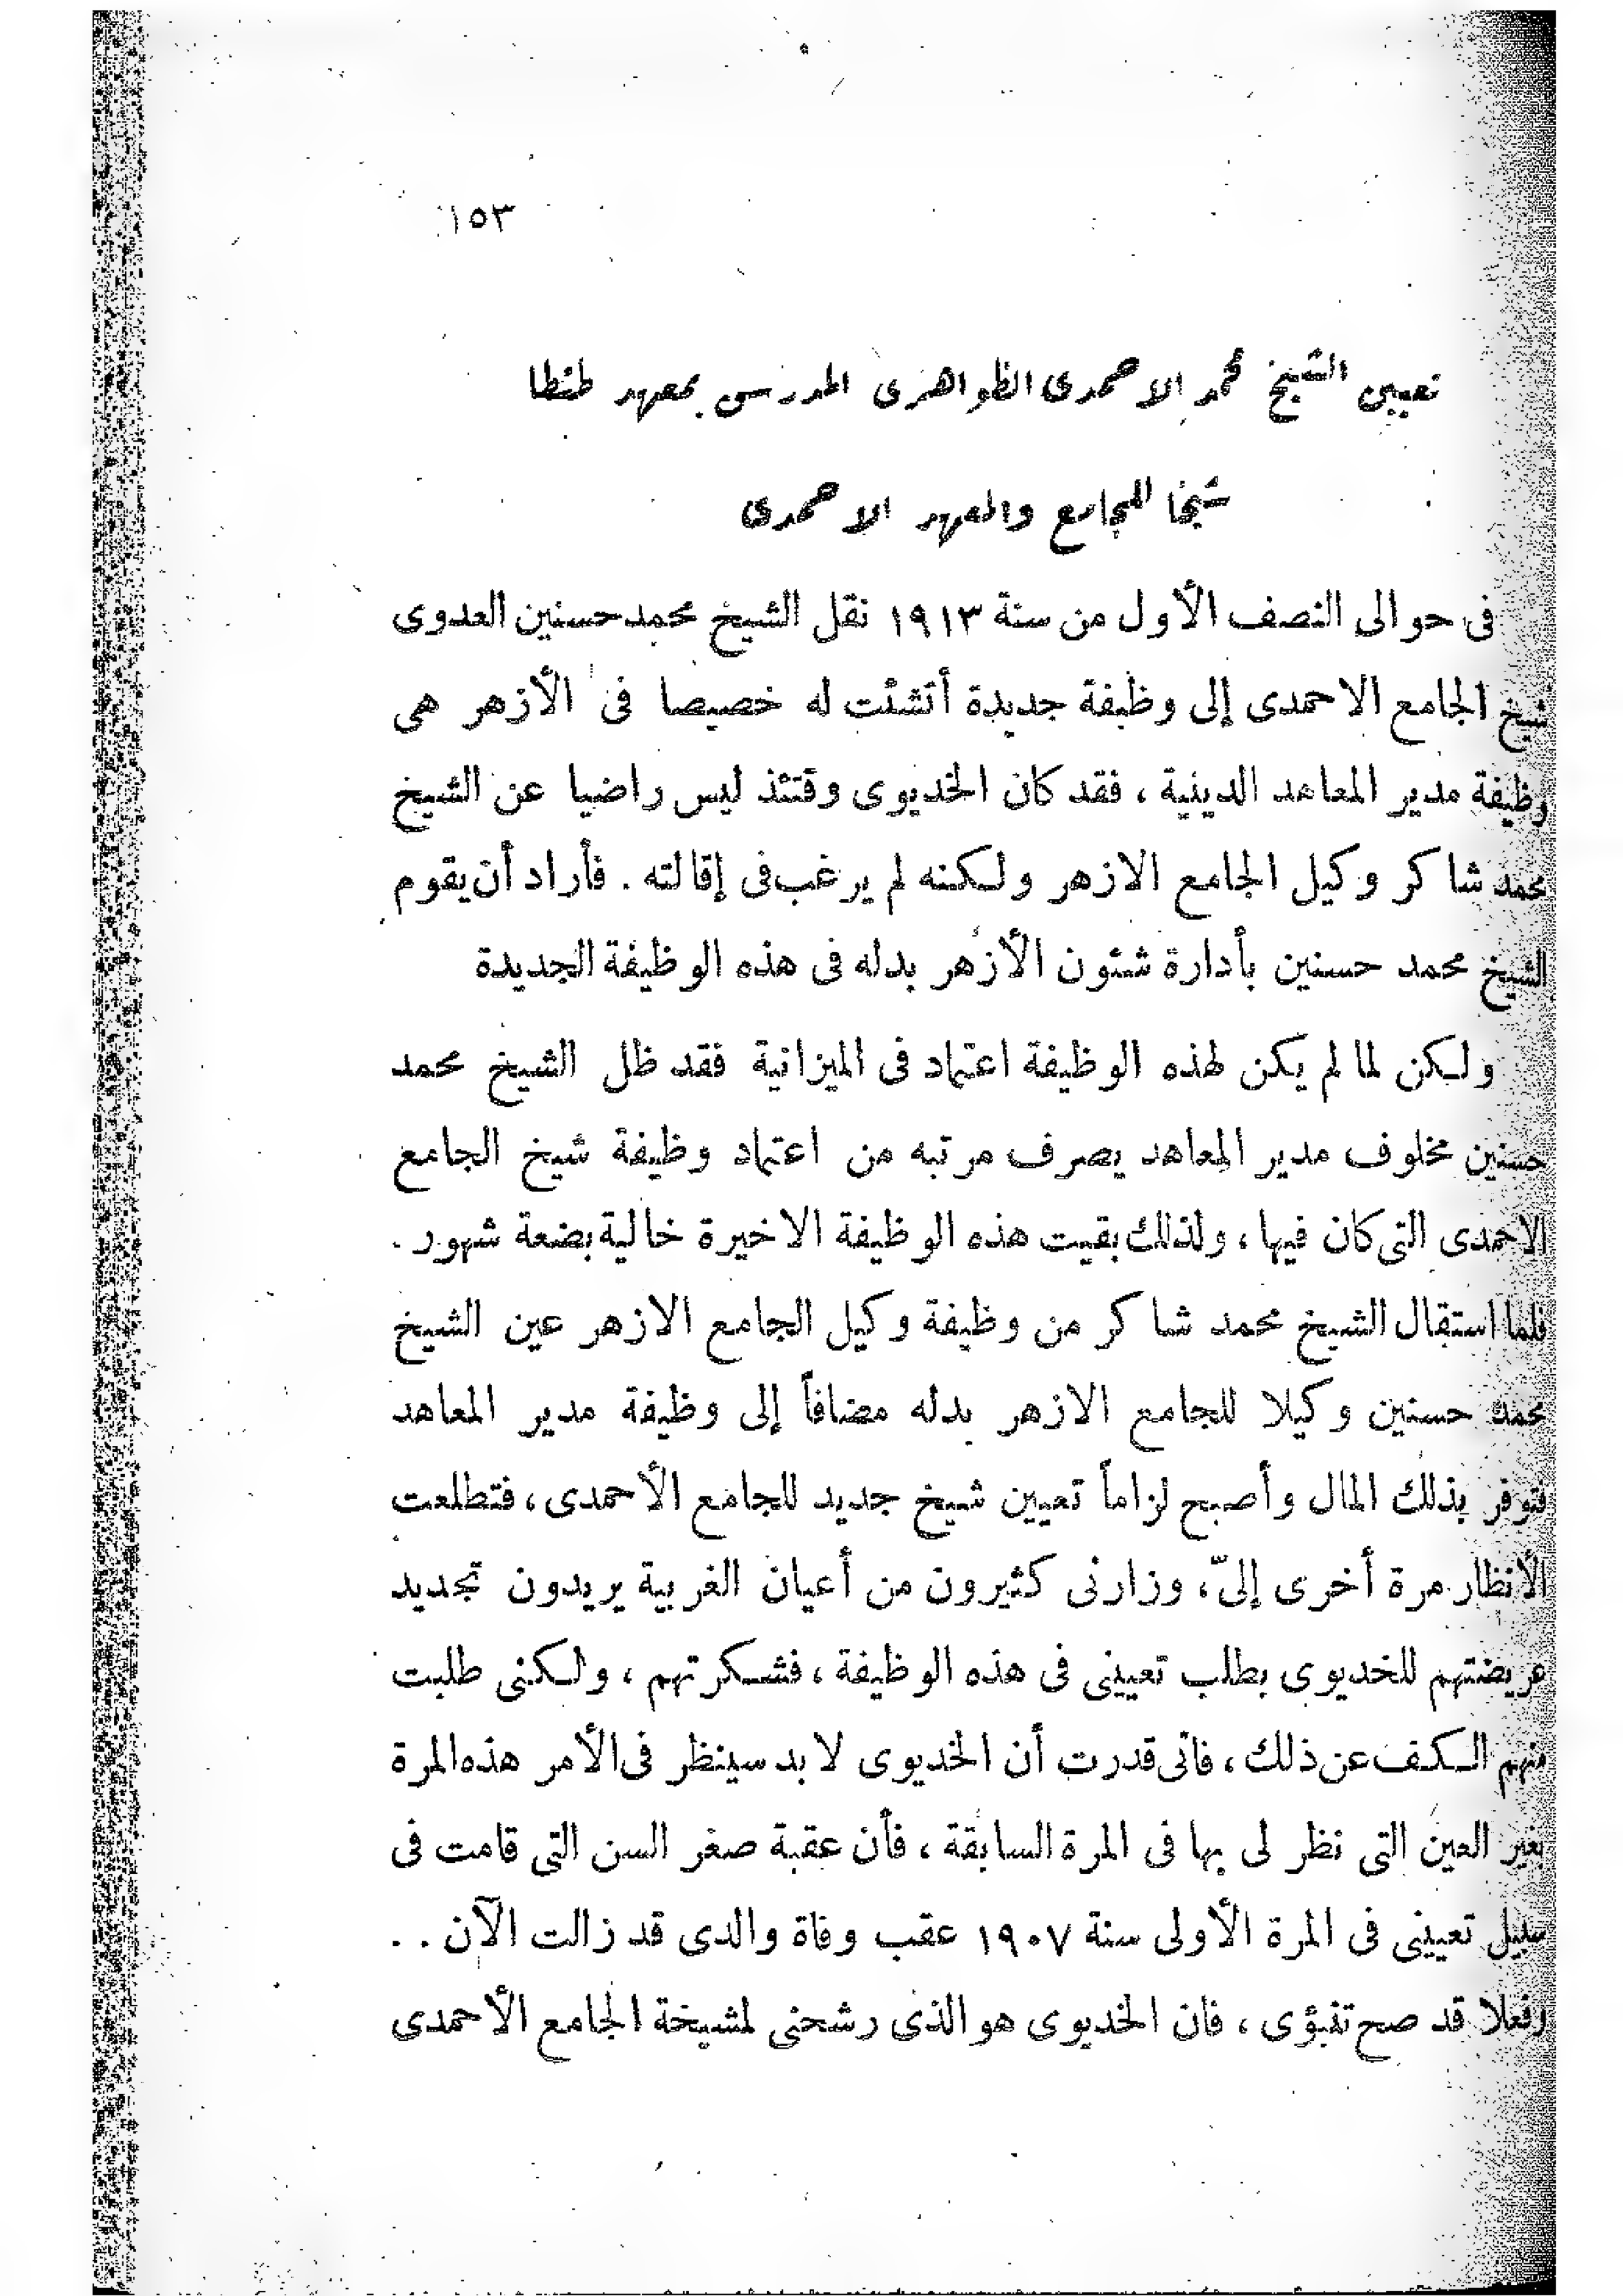 ١٥٣
تعيين الشيخ محمد الاحمدى الظواهرى المدرس بمعهد طنطا
شيخا للجامع والمعهد الاحمدى
فى حوالى النصف الأول من سنة ١٩١٣ نقل الشيخ محمد حسنين العدوى
شيخ الجامع الاحمدى إلى وظيفة جديدة أنشئت له خصيصا فى الأزهر هى
وظيفة مدير المعاهد الدينية ، فقد كان الخديوى وقتئذ ليس راضيا عن الشيخ
محمد شاكر وكيل الجامع الازهر ولكنه لم يرغب فى إقالته . فأراد أن يقوم
الشيخ محمد حسنين بأدارة شئون الأزهر بدله فى هذه الوظيفة الجديدة
ولكن لما لم يكن لهذه الوظيفة اعتماد فى الميزانية فقد ظل الشيخ محمد
حسنين مخلوف مدير المعاهد يصرف مرتبه من اعتماد وظيفة شيخ الجامع
الاحمدى التى كان فيها ، ولذلك بقيت هذه الوظيفة الاخيرة خالية بضعة شهور .
فلما استقال الشيخ محمد شاكر من وظيفة وكيل الجامع الازهر عين الشيخ
محمد حسنين وكيلا للجامع الازهر بدله مضافاً إلى وظيفة مدير المعاهد
فتوفر بذلك المال وأصبح لزاماً تعيين شيخ جديد للجامع الأحمدى ، فتطلعت
الأنظار مرة أخرى إلىّ ، وزارنى كثيرون من أعيان الغربية يريدون تجديد
عريضتهم للخديوى بطلب تعيينى فى هذه الوظيفة ، فشكرتهم ، ولكنى طلبت
منهم الكف عن ذلك ، فانى قدرت أن الخديوى لا بد سينظر فى الأمر هذه المرة
بغير العين التى نظر لى بها فى المرة السابقة ، فأن عقبة صغر السن التى قامت فى
سبيل تعيينى فى المرة الأولى سنة ١٩٠٧ عقب وفاة والدى قد زالت الآن . .
وفعلا قد صح تنبؤى ، فان الخديوى هو الذى رشحنى لمشيخة الجامع الأحمدى